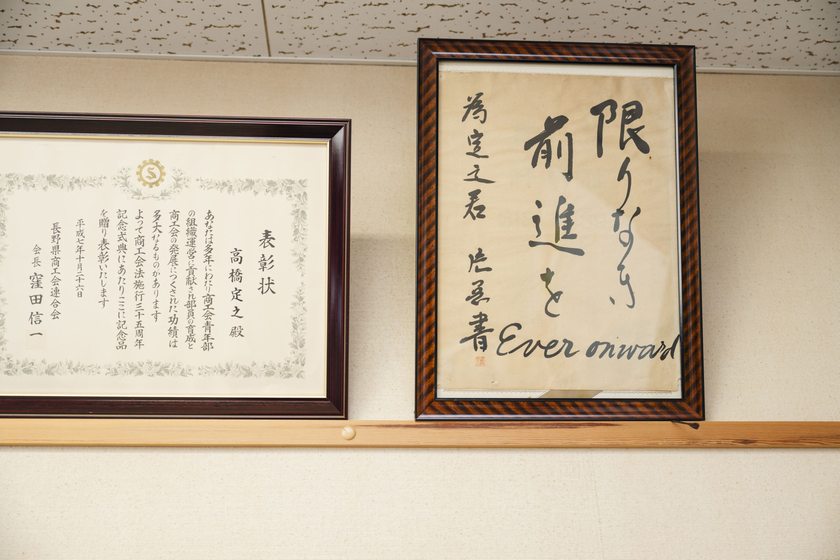 表彰状
高橋定之 殿
あなたは多年にわたり商工会青年部
の組織運営に貢献され部員の育成と
商工会の発展につくされた功績は
多大なるものがあります
よって商工会法施行三十五周年
記念式典にあたりここに記念品
を贈り表彰いたします
平成七年十月二十六日
長野県商工会連合会
会長 窪田信一
限りなき
前進を
Ever onward
為定之君
書